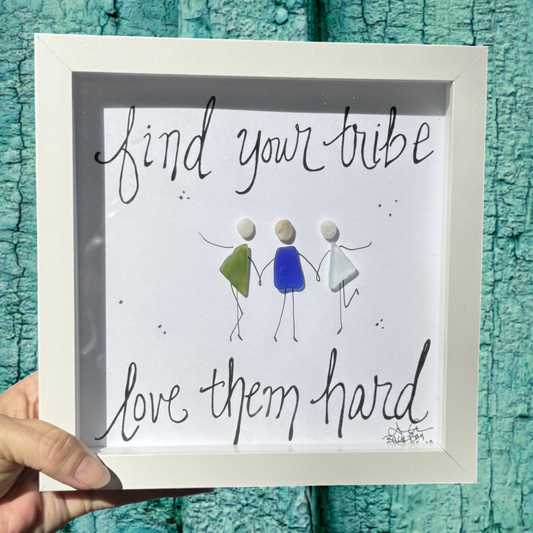 find your tribe
love them hard